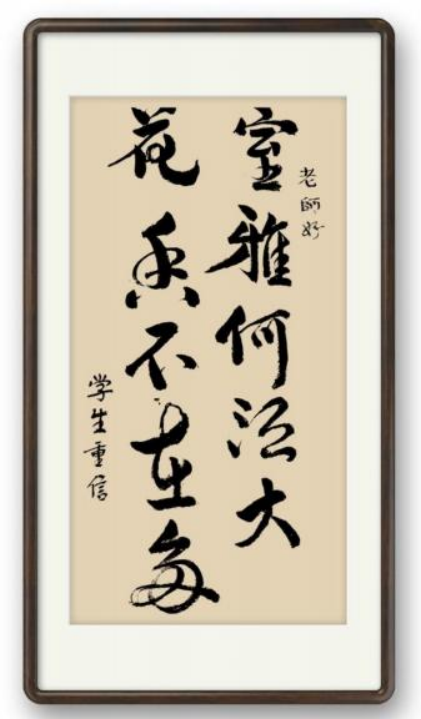 老師好
室雅何须大
花香不在多
学生重信